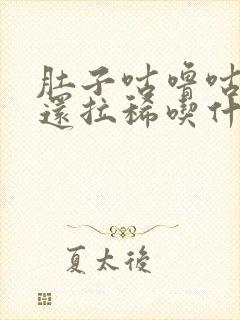 肚子咕嚕咕
還拉稀喫什
夏太後